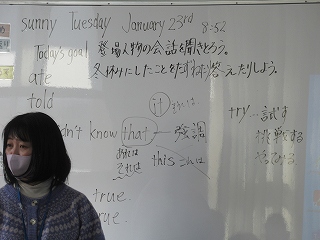 sunny Tuesday January 23rd 8:52
Today's goal 登場人物の会話を聞きとろう。
冬休みにしたことをたずねたり答えたりしよう。
ate
told
it
try…試す
挑戦する
n't know that — 強調
あれは
それは
this これは
true.
ue.